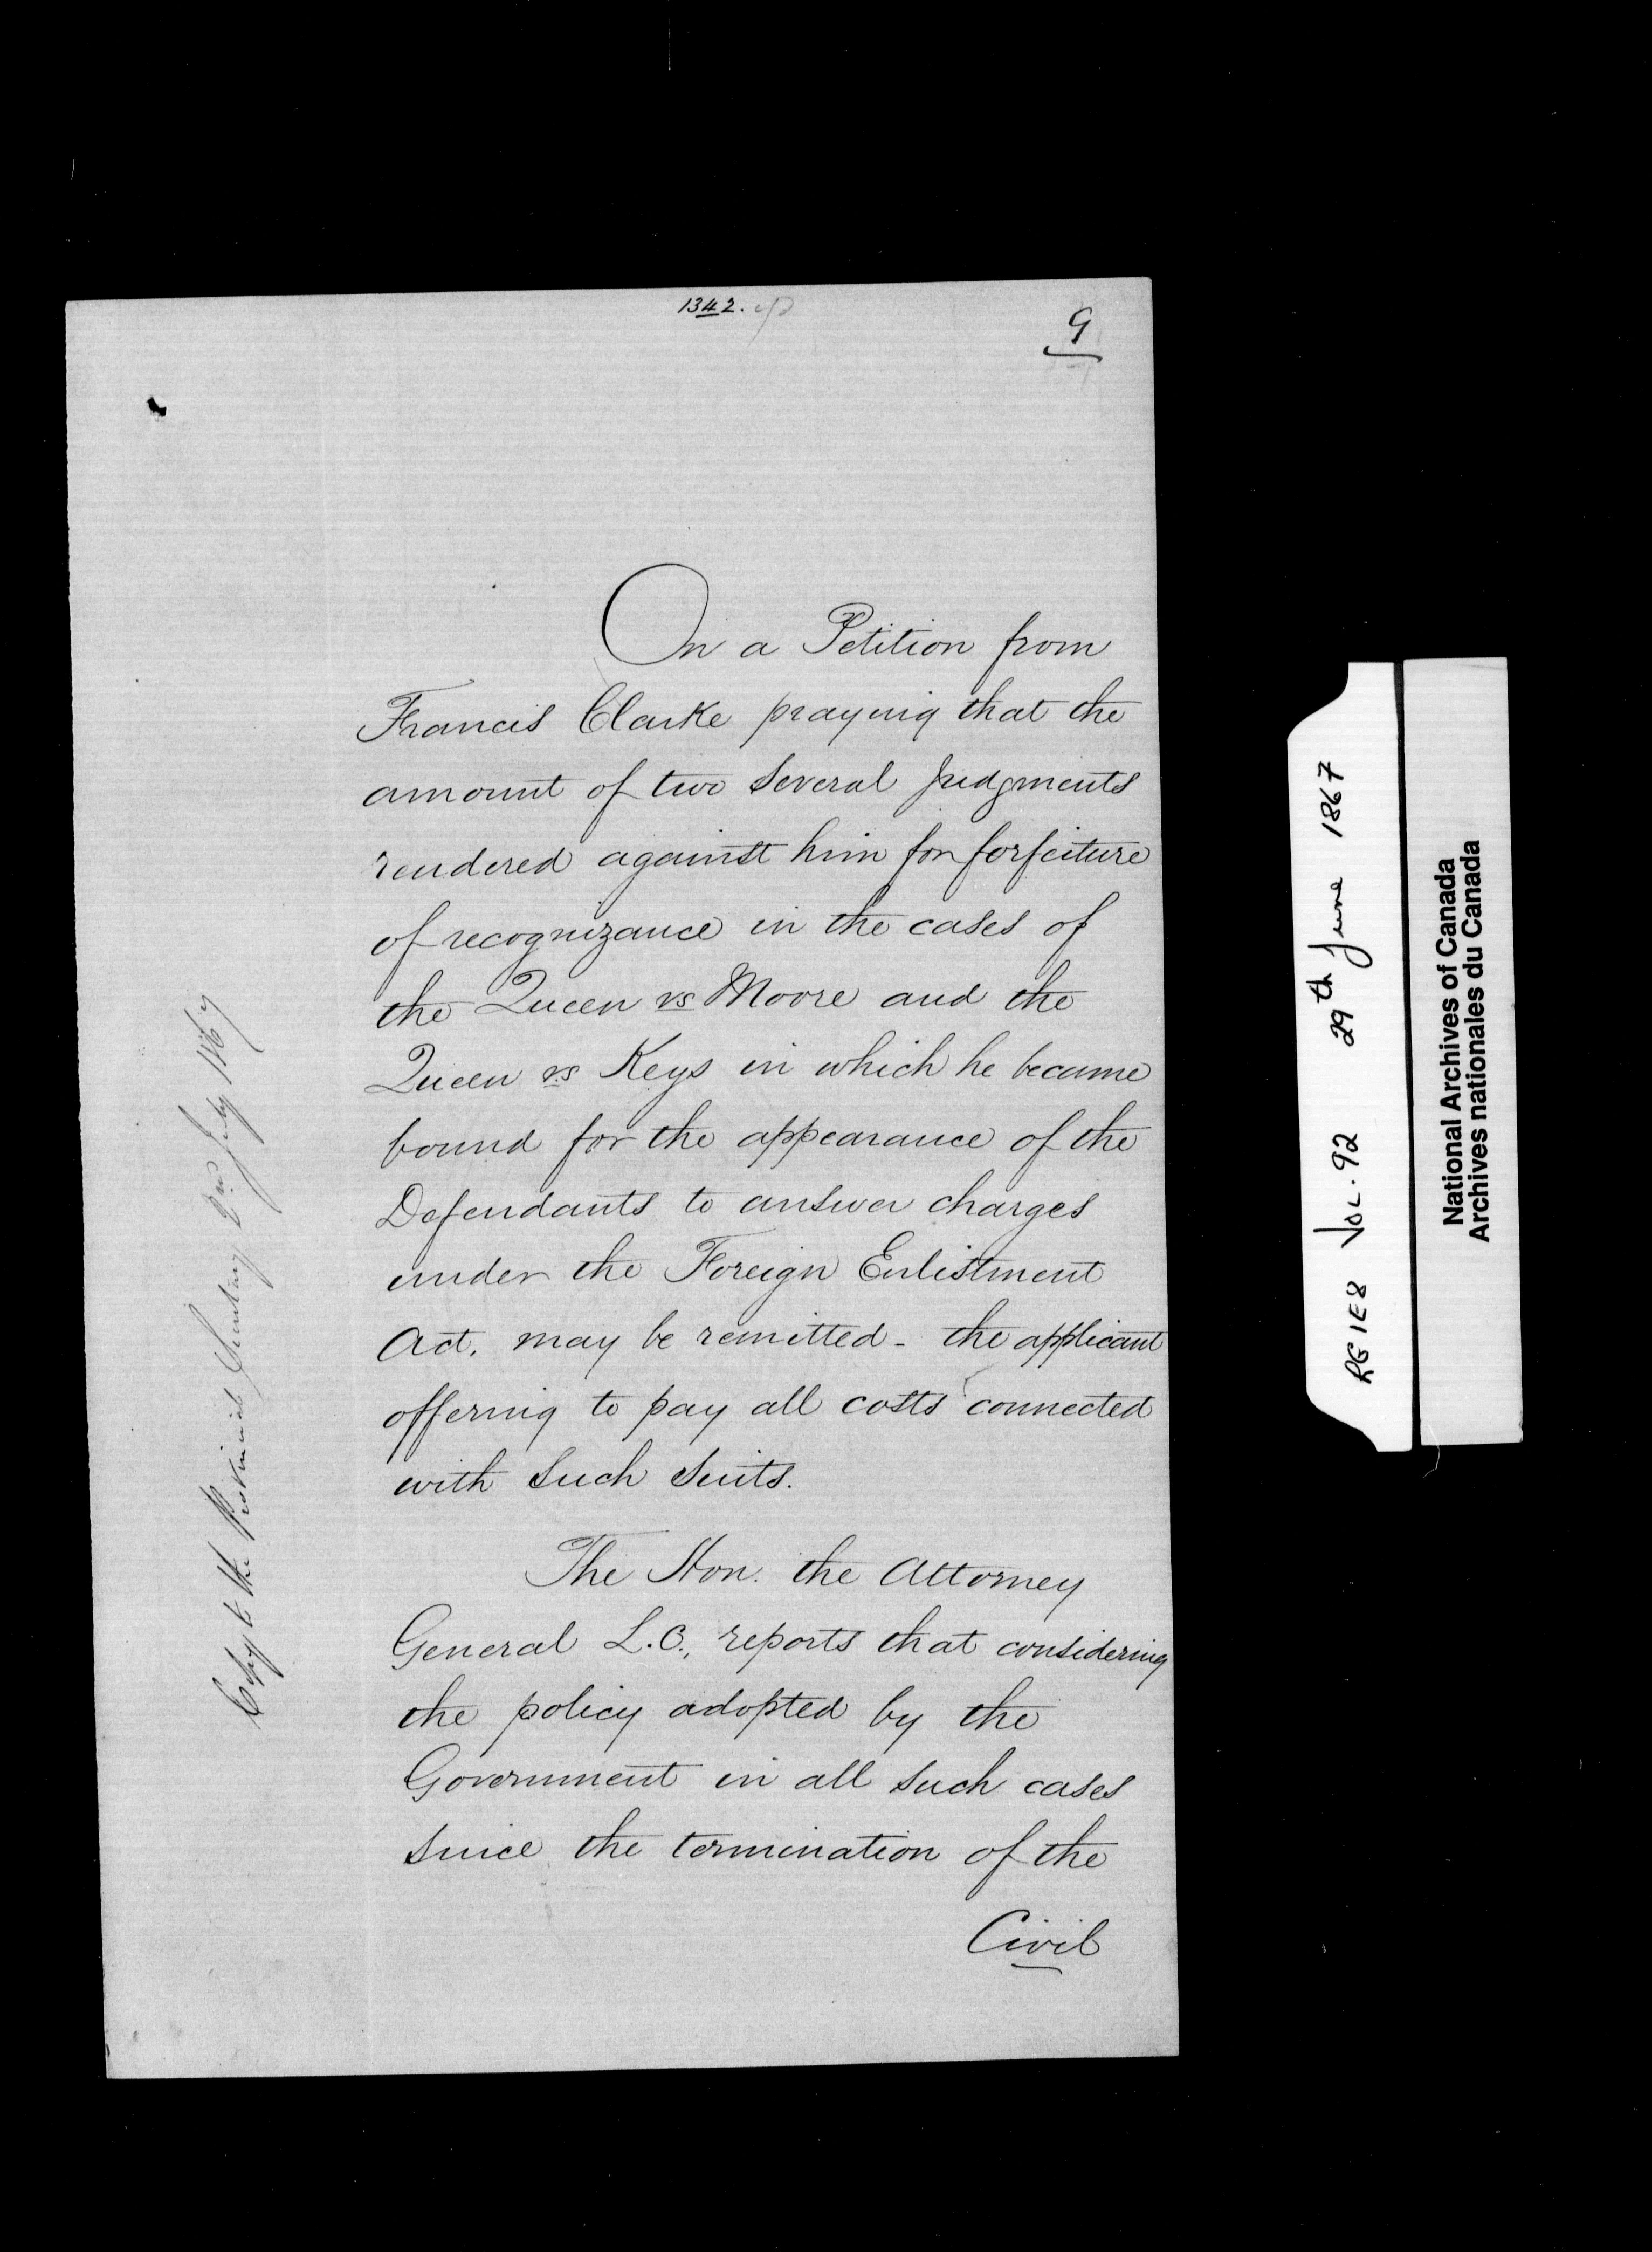 1342.
9
On a Petition from
Francis Clarke praying that the
amount of two several judgments
rendered against him for forfeiture
of recognizance in the cases of
the Queen vs Moore and the
Queen vs Keys in which he became
bound for the appearance of the
Defendants to answer charges
under the Foreign Enlistment
Act, may be remitted - the applicant
offering to pay all costs connected
with such suits.
The Hon. the Attorney
General L.C., reports that considering
the policy adopted by the
Government in all such cases
since the termination of the
Civil
Copy to the Provincial Secretary July 1867
RG 1E8 VOL. 92 29th June 1867
National Archives of Canada
Archives nationales du Canada